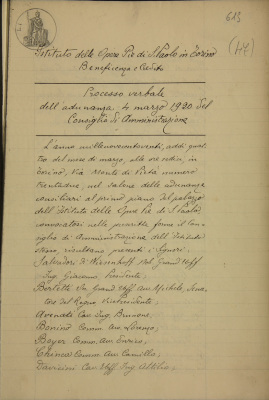 613
(47)
Istituto delle Opere Pie di S. Paolo in Torino
Beneficenza e Credito
Processo verbale
dell'adunanza 4 marzo 1920 del
Consiglio di Amministrazione
L'anno millenovecentoventi, addì quat-
tro del mese di marzo, alle ore sedici, in
Torino, Via Monte di Pietà numero
trentadue, nel salone delle adunanze
consiliari al primo piano del palazzo
dell'Istituto delle Opere Pie di S. Paolo,
convocatosi nelle prescritte forme il Con-
siglio di Amministrazione dell'Istituto
stesso, risultano presenti i Signori:
Salvadori di Wiesenhoff Nob. Grand'Uff.
Ing. Giacomo Presidente,
Borletti Grand'Uff. Avv. Michele, Sena-
tore del Regno Vicepresidente,
Avenati Cav. Ing.
Bonino Comm. Avv. Lorenzo,
Boyer Comm. Avv. Enrico,
Chiesa Comm. Avv. Camillo,
Cav. Uff. Ing.